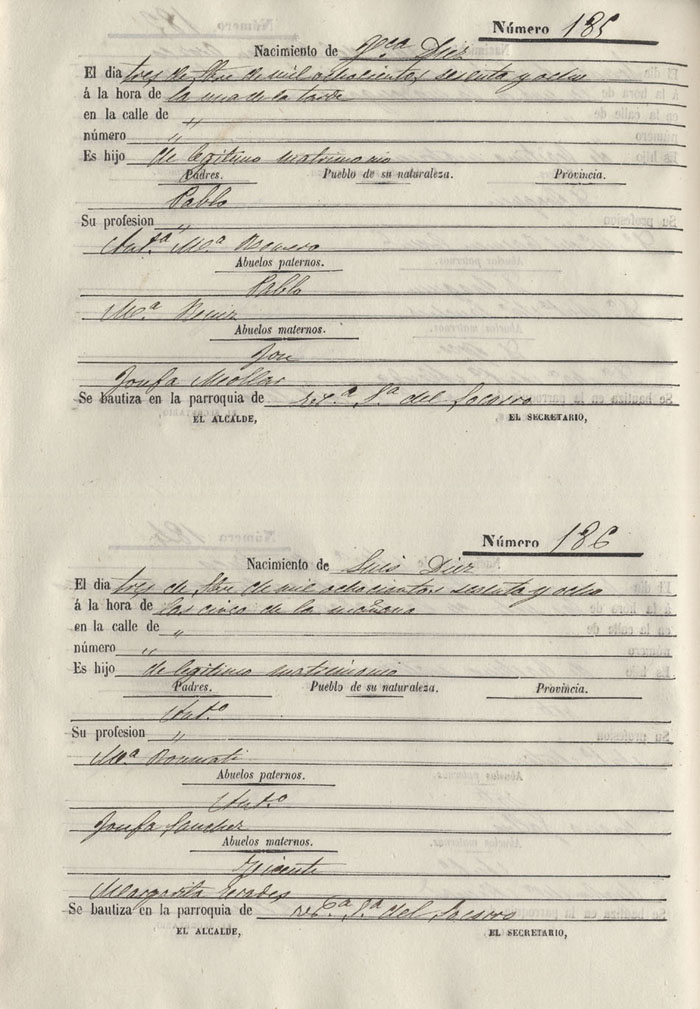 Número 185
Nacimiento de Fca Diez
El dia tres de de mil ochocientos sesenta y ocho
á la hora de la una de la tarde
en la calle de "
número "
Es hijo de legitimo matrimonio
Padres. Pueblo de su naturaleza. Provincia.
Pablo
Su profesion "
Ant.ª M.ª Romero
Abuelos paternos.
Pablo
M.ª
Abuelos maternos.
José
Josefa
Se bautiza en la parroquia de S.ª del Socorro
EL ALCALDE, EL SECRETARIO,
Número 186
Nacimiento de Luis Diez
El dia tres de de mil ochocientos sesenta y ocho
á la hora de las cinco de la mañana
en la calle de "
número "
Es hijo de legitimo matrimonio
Padres. Pueblo de su naturaleza. Provincia.
Ant.º
Su profesion "
M.ª
Abuelos paternos.
Ant.º
Josefa Sanchez
Abuelos maternos.
Vicente
Margarita
Se bautiza en la parroquia de S.ª del Socorro
EL ALCALDE, EL SECRETARIO,